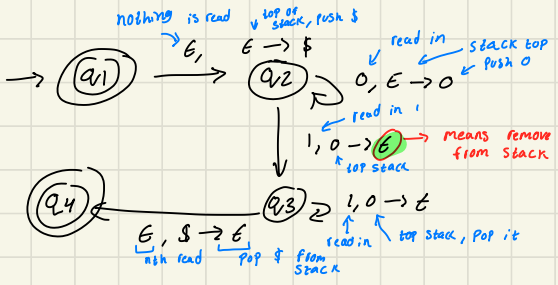 nothing is read
top of stack, push $
ε, ε → $
read in
stack top
push 0
q1
q2
0, ε → 0
read in 1
1, 0 → ε
means remove from stack
top stack
q4
q3
1, 0 → ε
ε, $ → ε
read in
top stack, pop it
nth read
pop $ from stack